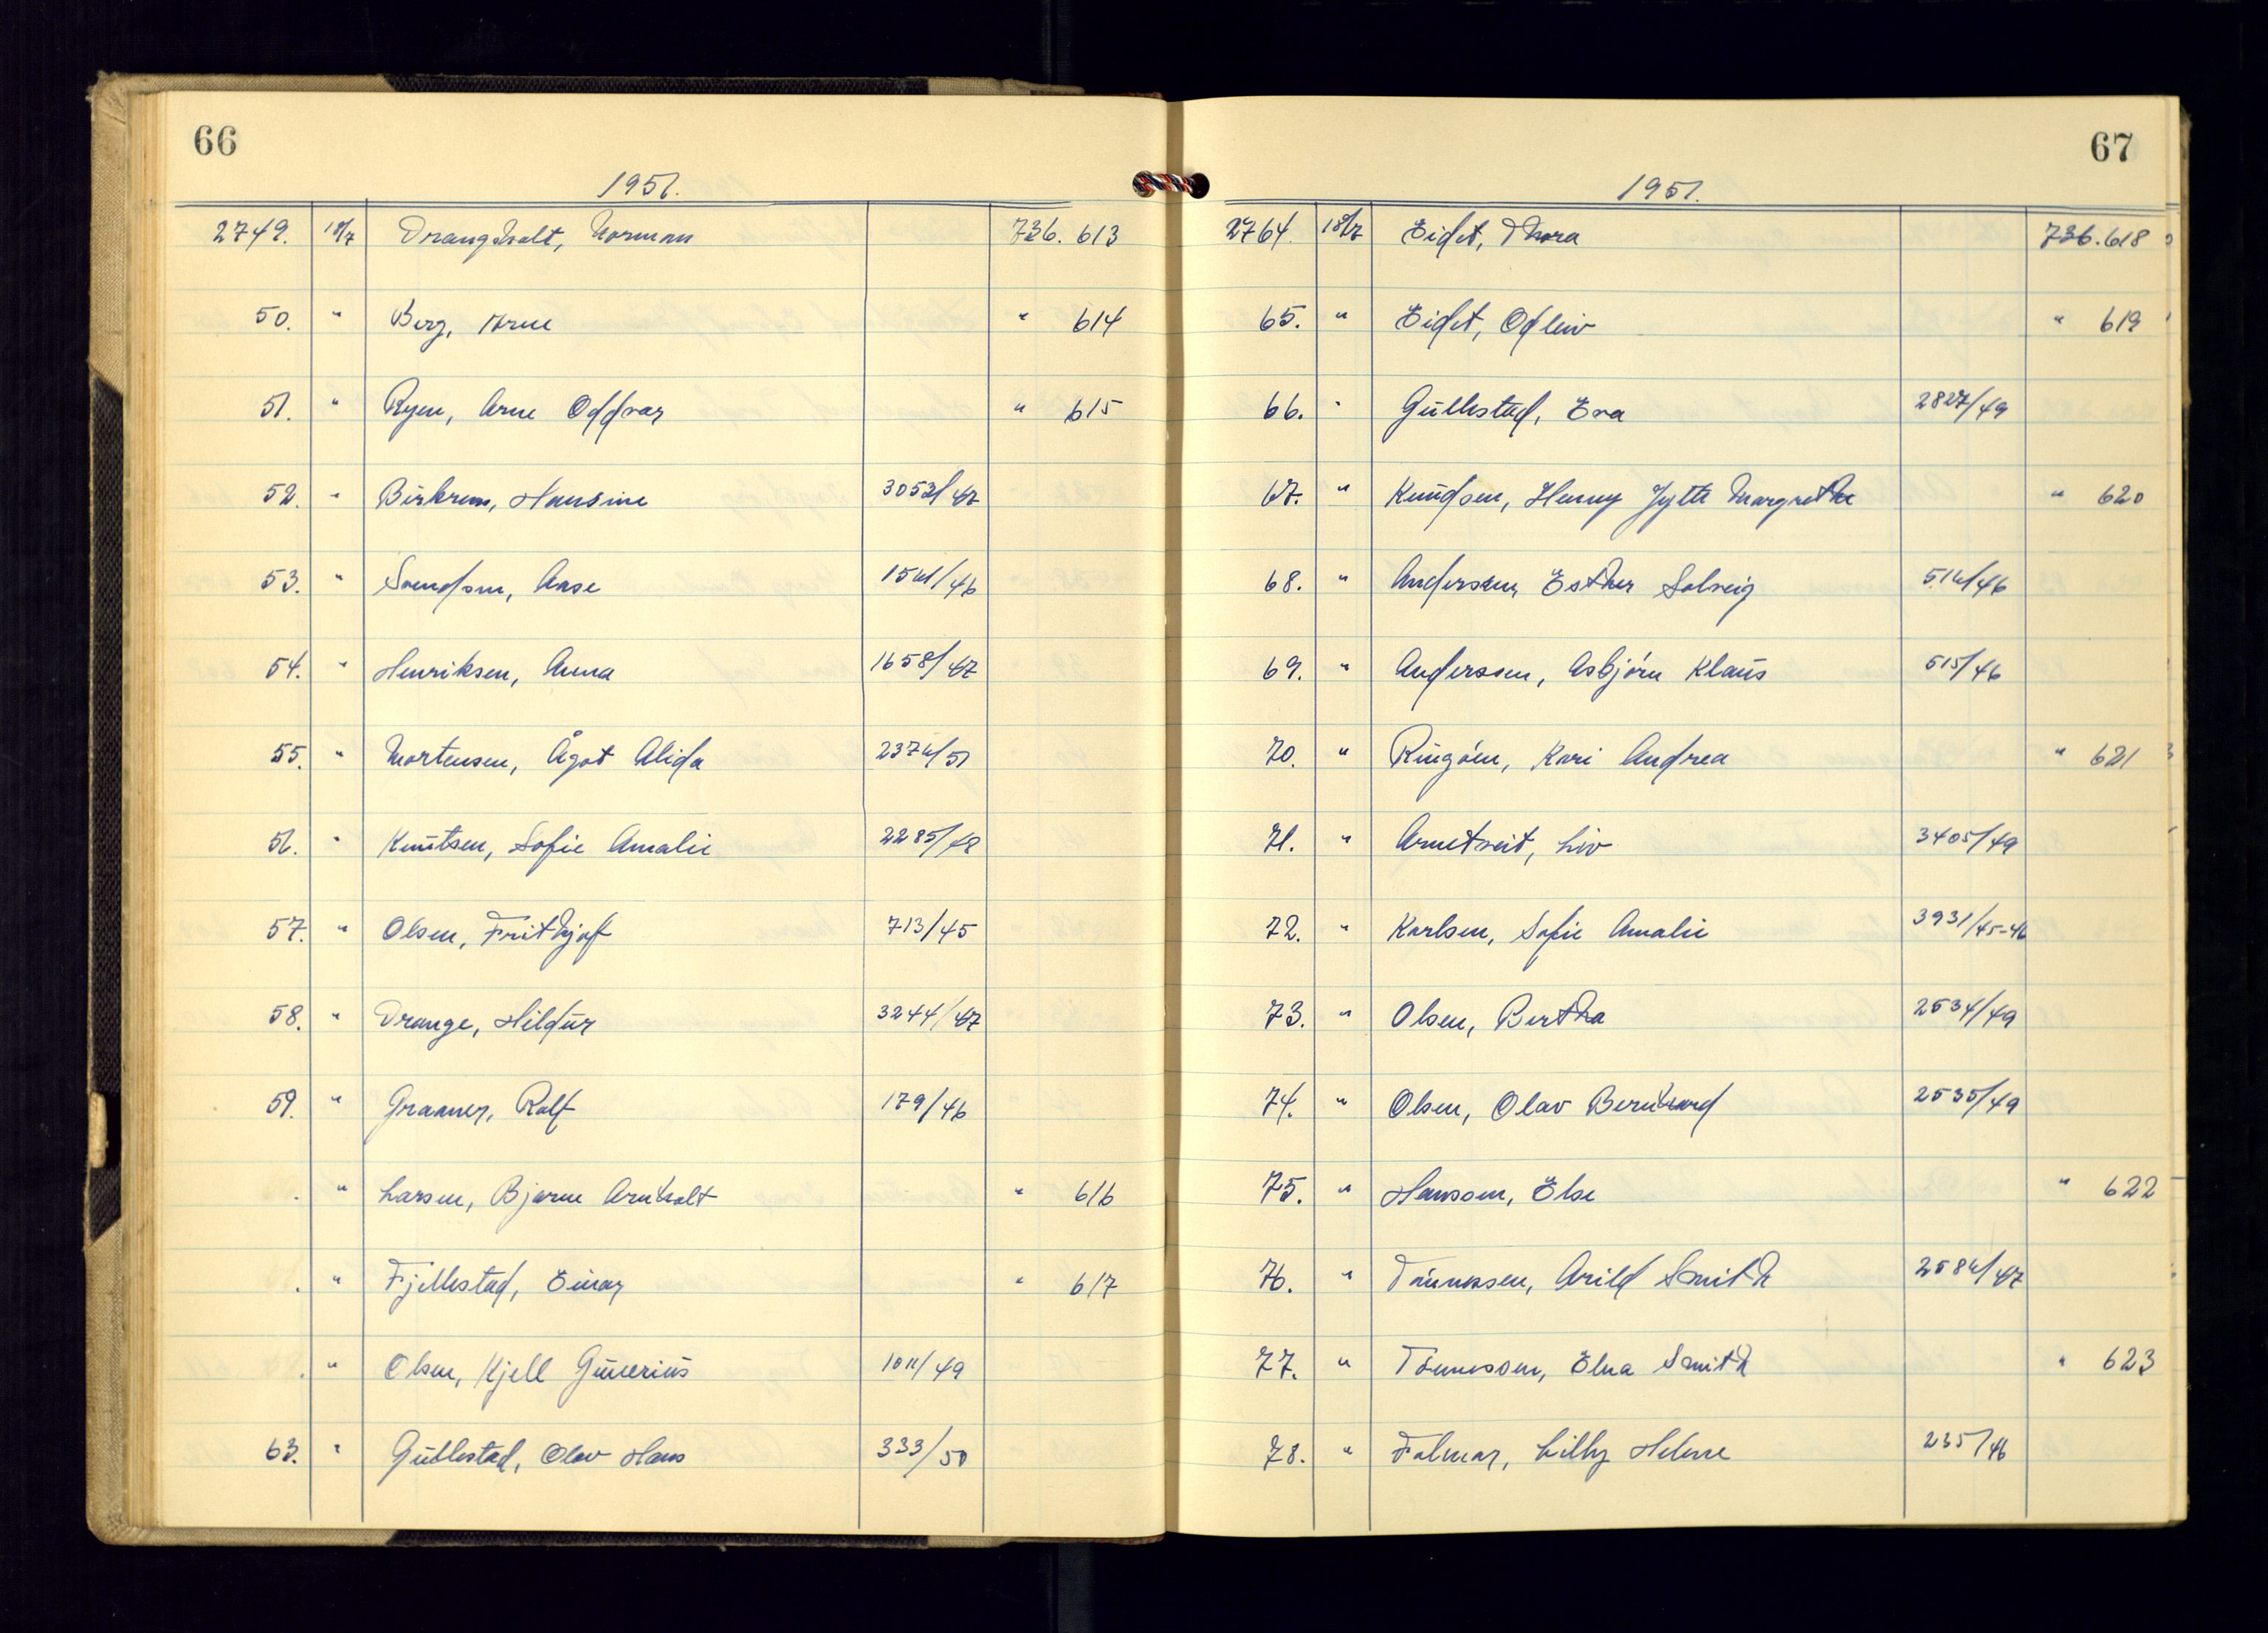 66
1951.
2749. 18/7 Drangsholt, Norman 736. 613
50. " Berg, Arne " 614
51. " Ryen, Arne Oddvar " 615
52. " Birkrem, Hansine 3053/47
53. " Svendsen, Aase 1541/46
54. " Henriksen, Anna 1658/47
55. " Mortensen, Ågot Alida 2374/51
56. " Knutsen, Sofie Amalie 2285/48
57. " Olsen, Frithjof 713/45
58. " Drange, Hildur 3244/47
59. " Graaner, Rolf 179/46
. " Larsen, Bjarne Arnholt " 616
. " Fjellestad, Einar " 617
. " Olsen, Kjell Gunerius 1011/49
63. " Gullestad, Olav Hans 333/50
67
1951.
2764. 18/7 Eidet, Thora 736. 618
65. " Eidet, Odleiv " 619
66. " Gullestad, Eva 2827/49
67. " Knudsen, Henny Jytte Margrethe " 620
68. " Anderssen, Esther Solveig 514/46
69. " Anderssen, Asbjörn Klaus 515/46
70. " Ringöen, Kari Andrea " 621
71. " Arnetveit, Liv 3405/49
72. " Karlsen, Sofie Amalie 3931/45-46
73. " Olsen, Bertha 2534/49
74. " Olsen, Olav Bernhard 2535/49
75. " Hanssen, Else " 622
76. " Tönnessen, Arild Smith 2584/47
77. " Tönnessen, Elna Smith " 623
78. " Folmar, Lilly Helene 235/46